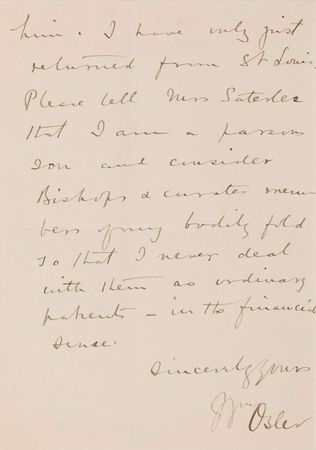 him. I have only just
returned from St Louis.
Please tell Mrs Saterlee
that I am a parsons
son and consider
Bishops & curates mem-
bers of my bodily fold
so that I never deal
with them as ordinary
patients – in the financial
sense.
Sincerely yours
Wm Osler